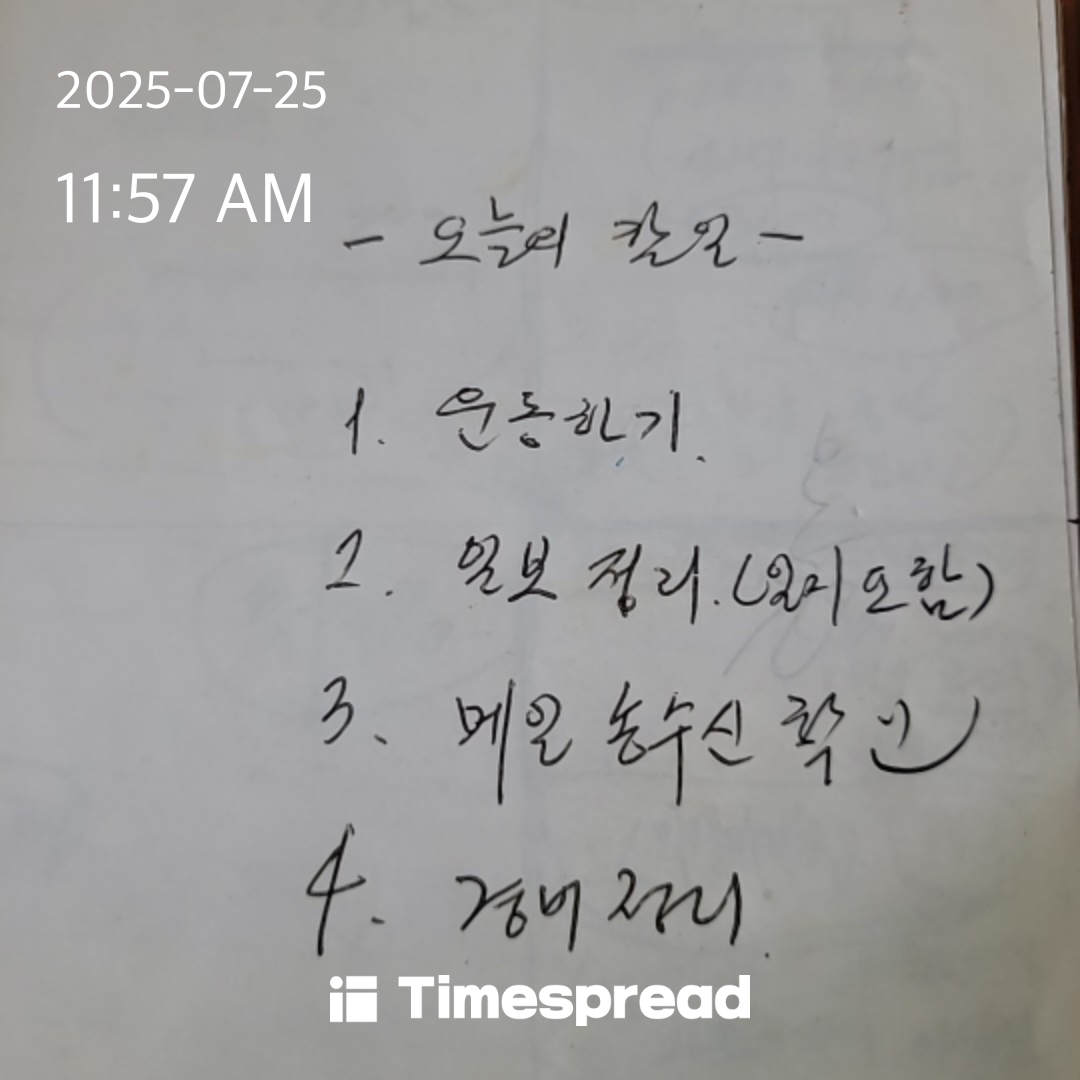 2025-07-25
11:57 AM
- 오늘의 할일 -
1. 운동하기.
2. 일보 정리.(일지 포함)
3. 메일 송수신 확인
4. 경비 정리.
Timespread